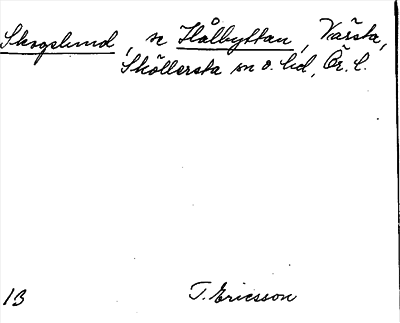 Skogslund, se Hålbyttan, Värsta,
Sköllersta sn o. hd, Ör. l.
13 T. Ericsson